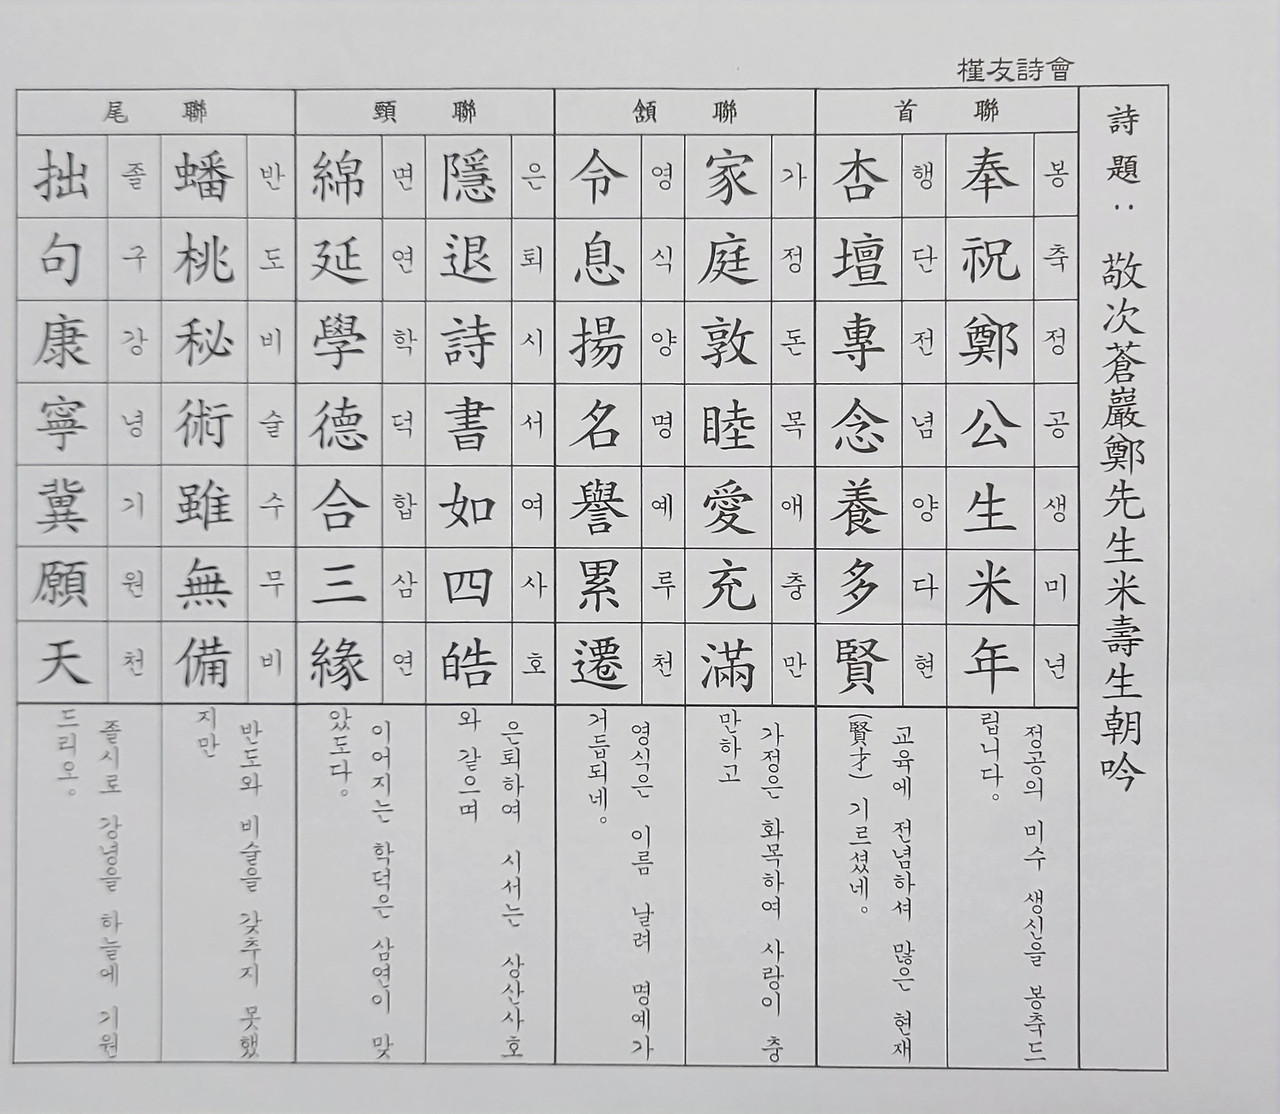 槿友詩會
詩題: 敬次蒼巖鄭先生米壽生朝吟
首聯
奉祝鄭公生米年
봉축정공생미년
정공의 미수 생신을 봉축드
립니다。
杏壇專念養多賢
행단전념양다현
교육에 전념하셔 많은 현재
(賢才) 기르셨네。
頷聯
家庭敦睦愛充滿
가정돈목애충만
가정은 화목하여 사랑이 충
만하고
令息揚名譽累遷
영식양명예루천
영식은 이름 날려 명예가
거듭되네。
頸聯
隱退詩書如四皓
은퇴시서여사호
은퇴하여 시서는 상산사호
와 같으며
綿延學德合三緣
면연학덕합삼연
이어지는 학덕은 삼연이 맞
았도다。
尾聯
蟠桃秘術雖無備
반도비술수무비
반도와 비술을 갖추지 못했
지만
拙句康寧冀願天
졸구강녕기원천
졸시로 강녕을 하늘에 기원
드리오。